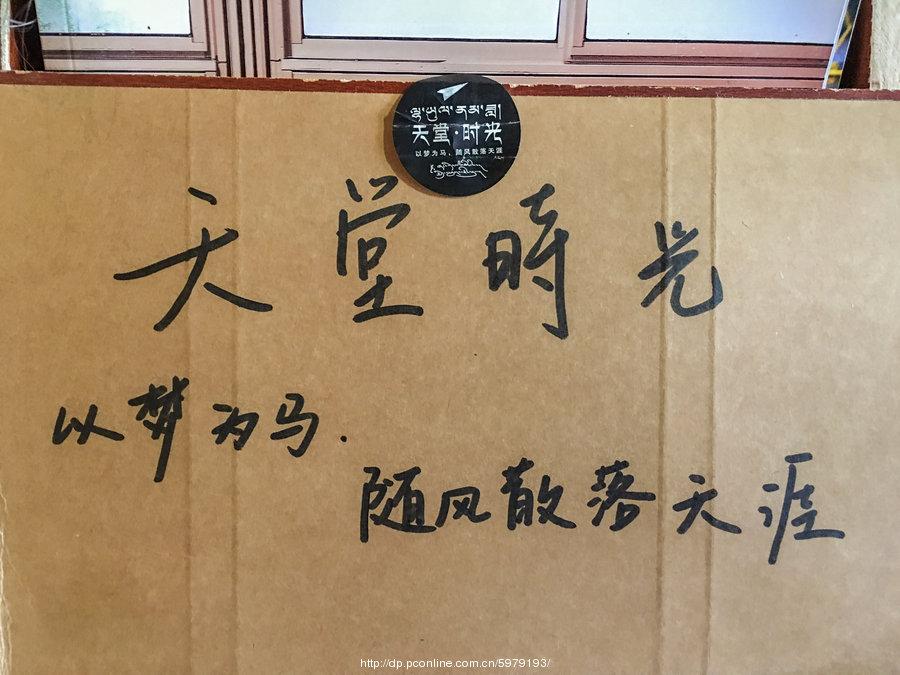 天堂·时光
以梦为马，随风散落天涯
天堂時光
以梦为马.
随风散落天涯
http://dp.pconline.com.cn/5979193/